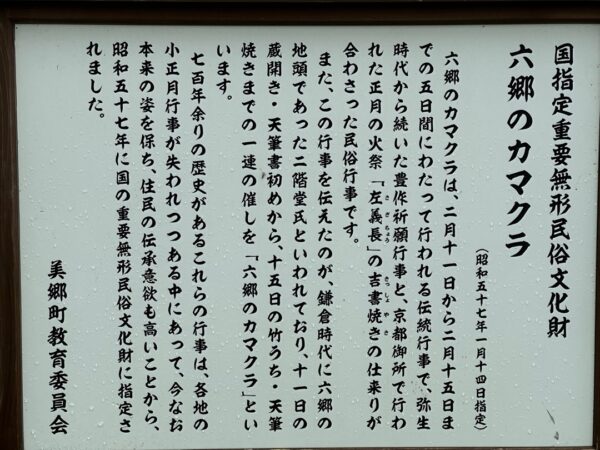 国指定重要無形民俗文化財
六郷のカマクラ
(昭和五十七年一月十四日指定)
六郷のカマクラは、二月十一日から二月十五日ま
での五日間にわたって行われる伝統行事で、弥生
時代から続いた豊作祈願行事と、京都御所で行わ
れた正月の火祭「左義長」の吉書焼きの仕来りが
さぎちょう
きっしょやき
合わさった民俗行事です。
また、この行事を伝えたのが、鎌倉時代に六郷の
地頭であった二階堂氏といわれており、十一日の
蔵開き・天筆書初めから、十五日の竹うち・天筆
焼きまでの一連の催しを「六郷のカマクラ」とい
います。
七百年余りの歴史があるこれらの行事は、各地の
小正月行事が失われつつある中にあって、今なお
本来の姿を保ち、住民の伝承意欲も高いことから、
昭和五十七年に国の重要無形民俗文化財に指定さ
れました。
美郷町教育委員会